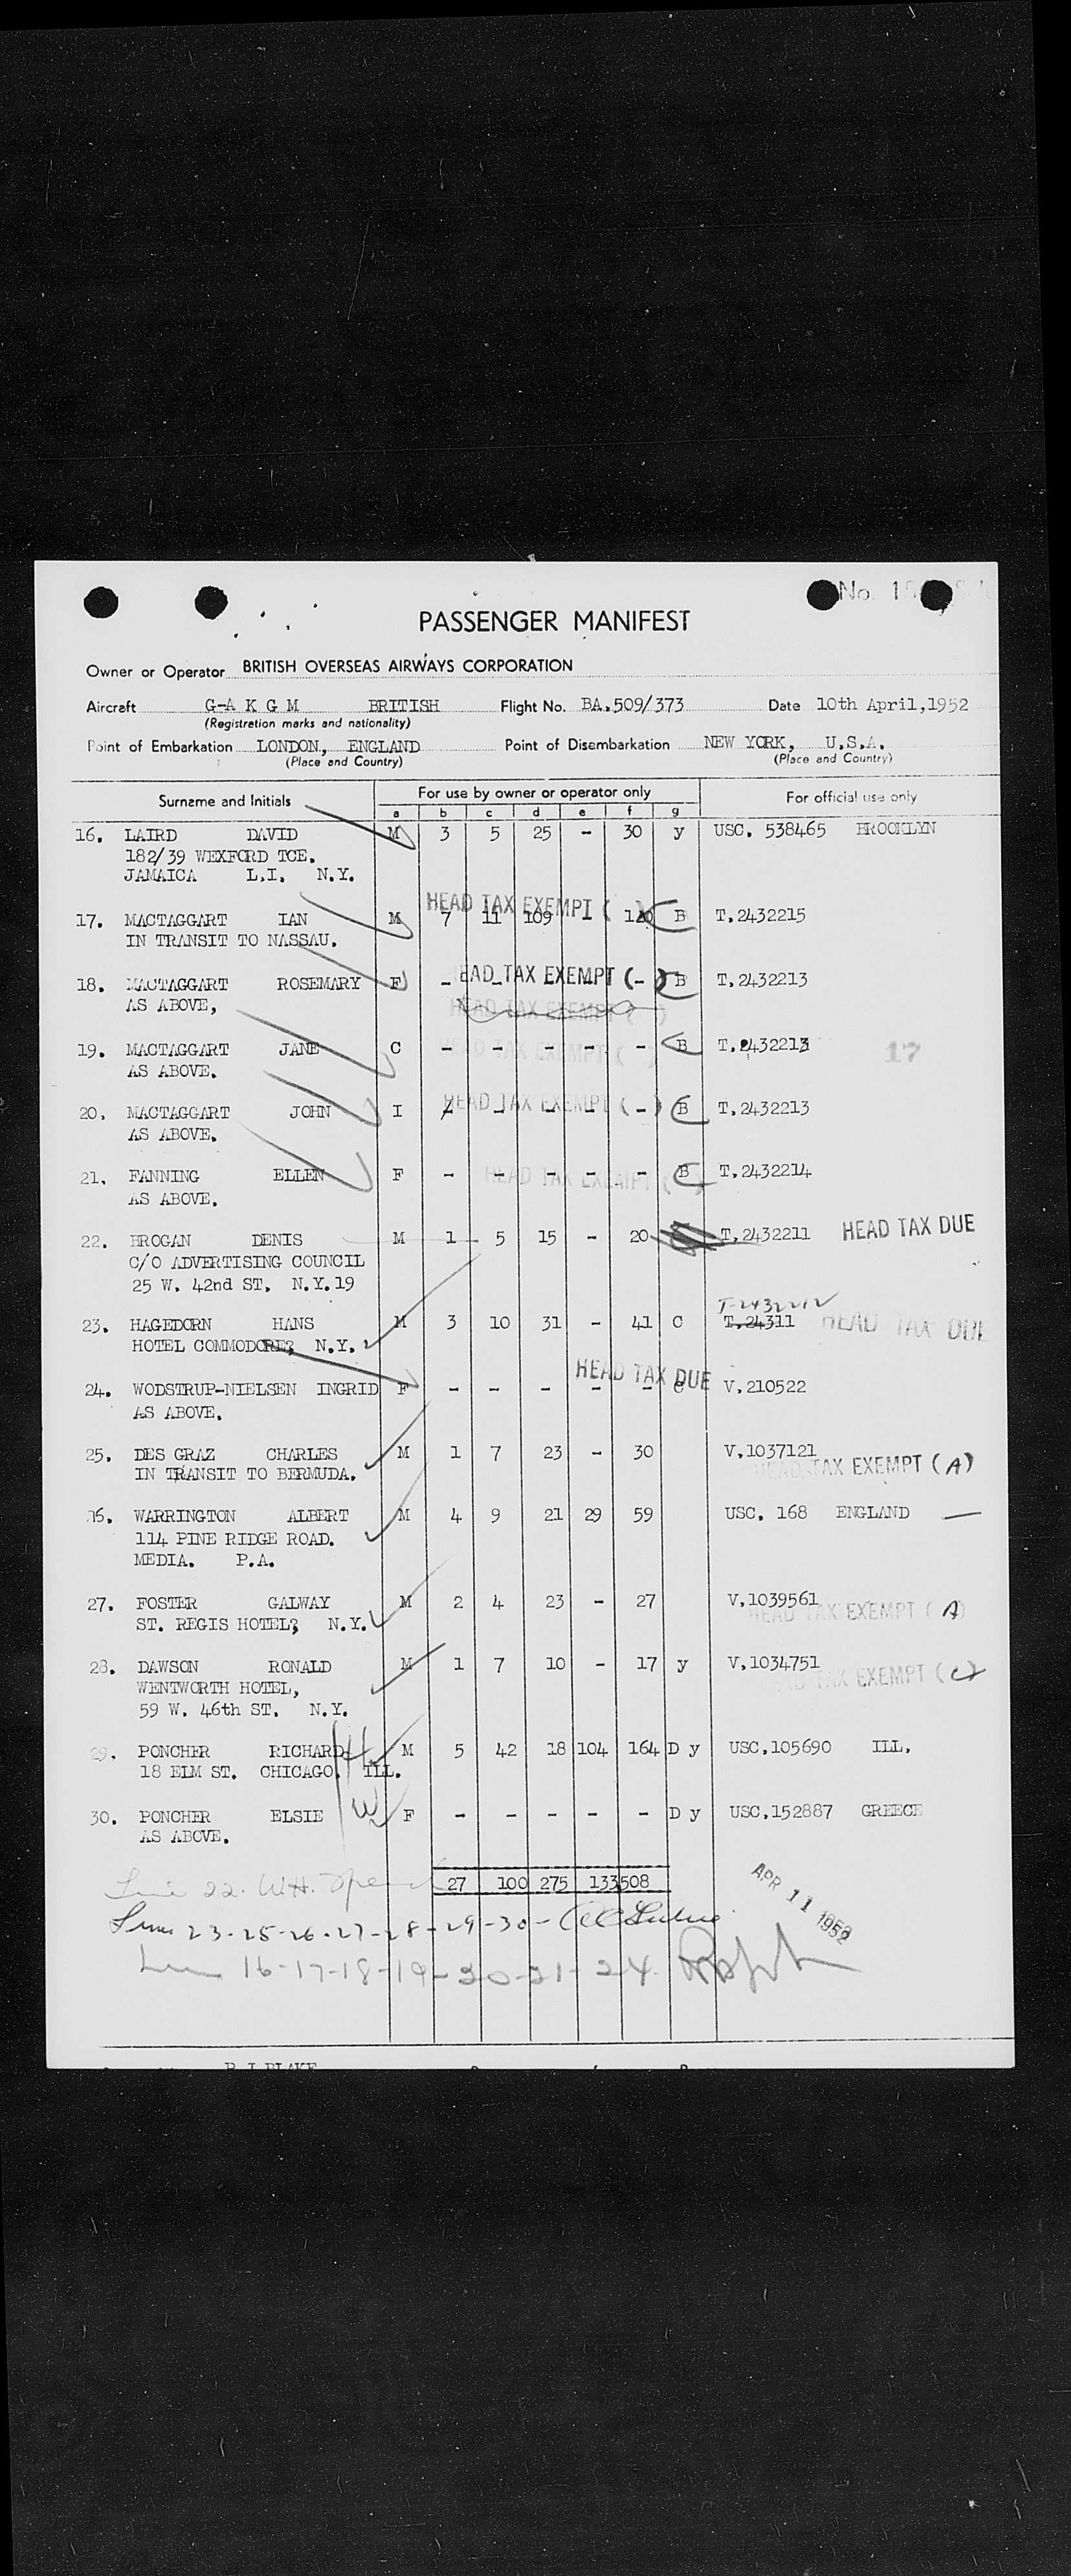 No. 1
PASSENGER MANIFEST
Owner or Operator BRITISH OVERSEAS AIRWAYS CORPORATION
Aircraft G-A K G M BRITISH Flight No. BA.509/373 Date 10th April,1952
(Registration marks and nationality)
Point of Embarkation LONDON, ENGLAND Point of Disembarkation NEW YORK, U.S.A.
(Place and Country) (Place and Country)
Surname and Initials For use by owner or operator only For official use only
a b c d e f g
16. LAIRD DAVID M 3 5 25 - 30 y USC. 538465 BROOKLYN
182/39 WEXFORD TCE.
JAMAICA L.I. N.Y.
HEAD TAX EXEMPT ( )
17. MACTAGGART IAN M 7 11 109 - 120 B T.2432215
IN TRANSIT TO NASSAU.
HEAD TAX EXEMPT ( )
18. MACTAGGART ROSEMARY F - - - - - B T.2432213
AS ABOVE,
HEAD TAX EXEMPT ( )
19. MACTAGGART JANE C - - - - - B T.2432213
AS ABOVE.
HEAD TAX EXEMPT ( )
17
20. MACTAGGART JOHN I - - - - - B T.2432213
AS ABOVE.
HEAD TAX EXEMPT ( )
21. FANNING ELLEN F - - - - - B T.2432214
AS ABOVE.
HEAD TAX EXEMPT ( )
22. BROGAN DENIS M 1 5 15 - 20 T.2432211 HEAD TAX DUE
C/O ADVERTISING COUNCIL
25 W. 42nd ST. N.Y.19
T-2432212
23. HAGEDORN HANS M 3 10 31 - 41 C T.24311 HEAD TAX DUE
HOTEL COMMODORE? N.Y.
HEAD TAX DUE
24. WODSTRUP-NIELSEN INGRID F - - - - - C V.210522
AS ABOVE.
25. DES GRAZ CHARLES M 1 7 23 - 30 V.1037121
IN TRANSIT TO BERMUDA. HEAD TAX EXEMPT (A)
26. WARRINGTON ALBERT M 4 9 21 29 59 USC. 168 ENGLAND —
114 PINE RIDGE ROAD.
MEDIA. P.A.
27. FOSTER GALWAY M 2 4 23 - 27 V.1039561
ST. REGIS HOTEL? N.Y. HEAD TAX EXEMPT (A)
28. DAWSON RONALD M 1 7 10 - 17 y V.1034751
WENTWORTH HOTEL, HEAD TAX EXEMPT (C)
59 W. 46th ST. N.Y.
29. PONCHER RICHARD H M 5 42 18 104 164 D y USC.105690 ILL.
18 ELM ST. CHICAGO. ILL.
30. PONCHER ELSIE W F - - - - - D y USC.152887 GREECE
AS ABOVE.
27 100 275 133 508
Line 22. W.H.
APR 11 1952
Lines 23-25-26-27-28-29-30-
Lines 16-17-18-19-20-21-24